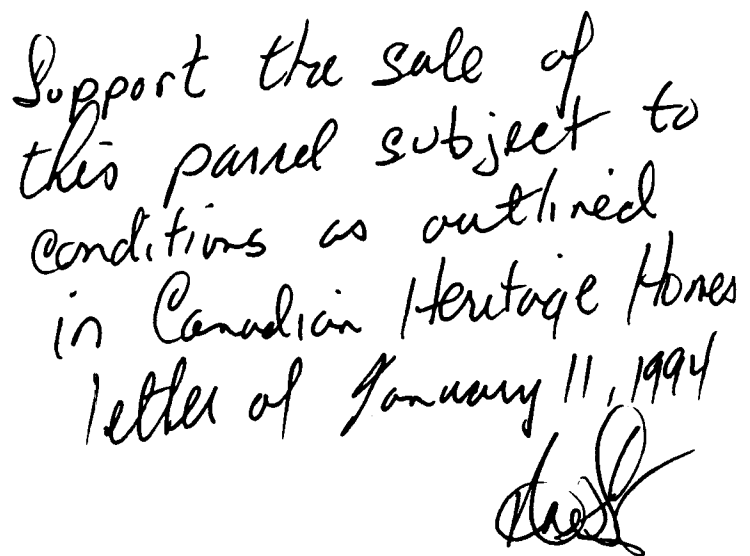 Support the sale of
this parcel subject to
conditions as outlined
in Canadian Heritage Homes
letter of January 11, 1994